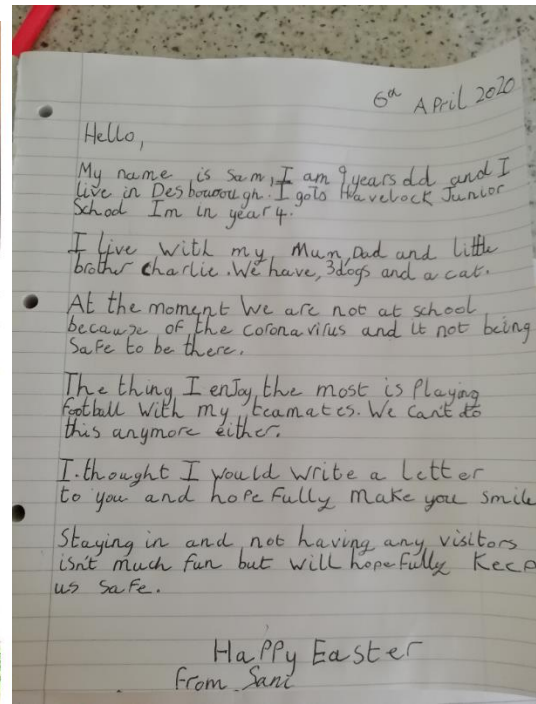 6th April 2020
Hello,
My name is Sam, I am 9 years old and I
live in Desbourough. I go to Havelock Junior
School Im in year 4.
I live with my Mum, Dad and little
brother charlie. We have, 3 dogs and a cat.
At the moment we are not at school
because of the coronavirus and it not being
safe to be there.
The thing I enJoy the most is Playing
football with my teamates. We can't do
this anymore either.
I. thought I would write a letter
to you and hopefully make you smile
Staying in and not having any visitors
isn't much fun but will hopefully Keep
us safe.
Happy Easter
From Sam